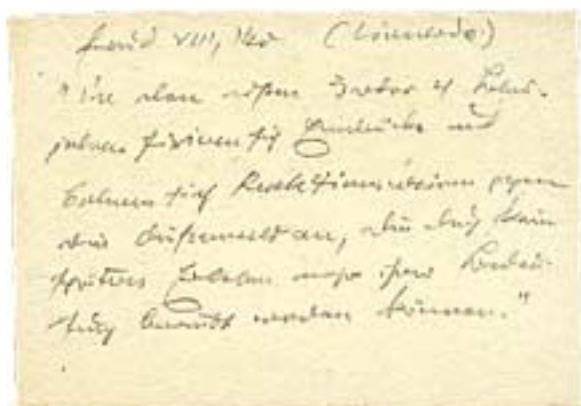 Freud VIII, (Leonardo.)
"In den ersten 3 oder 4 Lebens-
jahren fixieren sich Eindrücke und
bahnen sich Reaktionsweisen gegen
die Außenwelt an, die durch kein
späteres Erleben mehr ihrer Bedeu-
tung beraubt werden können."